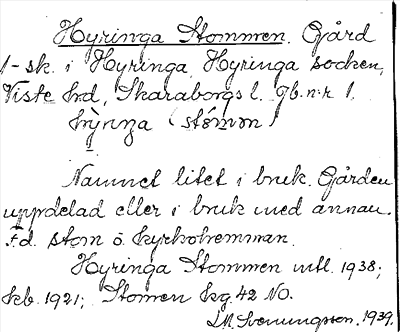 Hyringa Stommen. Gård
1-sk. i Hyringa, Hyringa socken,
Viste hrd, Skaraborgs l. Jb.n:r 1.
(stómən)
Namnet litet i bruk. Gården
uppdelad eller i bruk med annan.
F.d. stom o. kyrkohemman.
Hyringa Stommen mtl. 1938;
kb. 1921; Stomen kg. 42 NO.
I.M. Svenungsson. 1939.